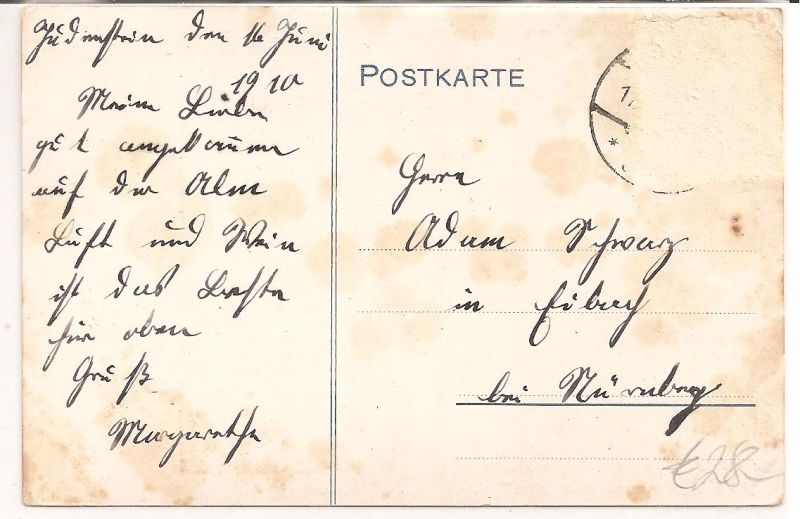 Judenstein den 16 Juni
1910
Meine Lieben
gut angekommen
auf der Alm
Luft und Wein
ist das Beste
hir oben
Gruß
Margarethe
POSTKARTE
Herrn
Adam Schwarz
in Eibach
bei Nürnberg
€28